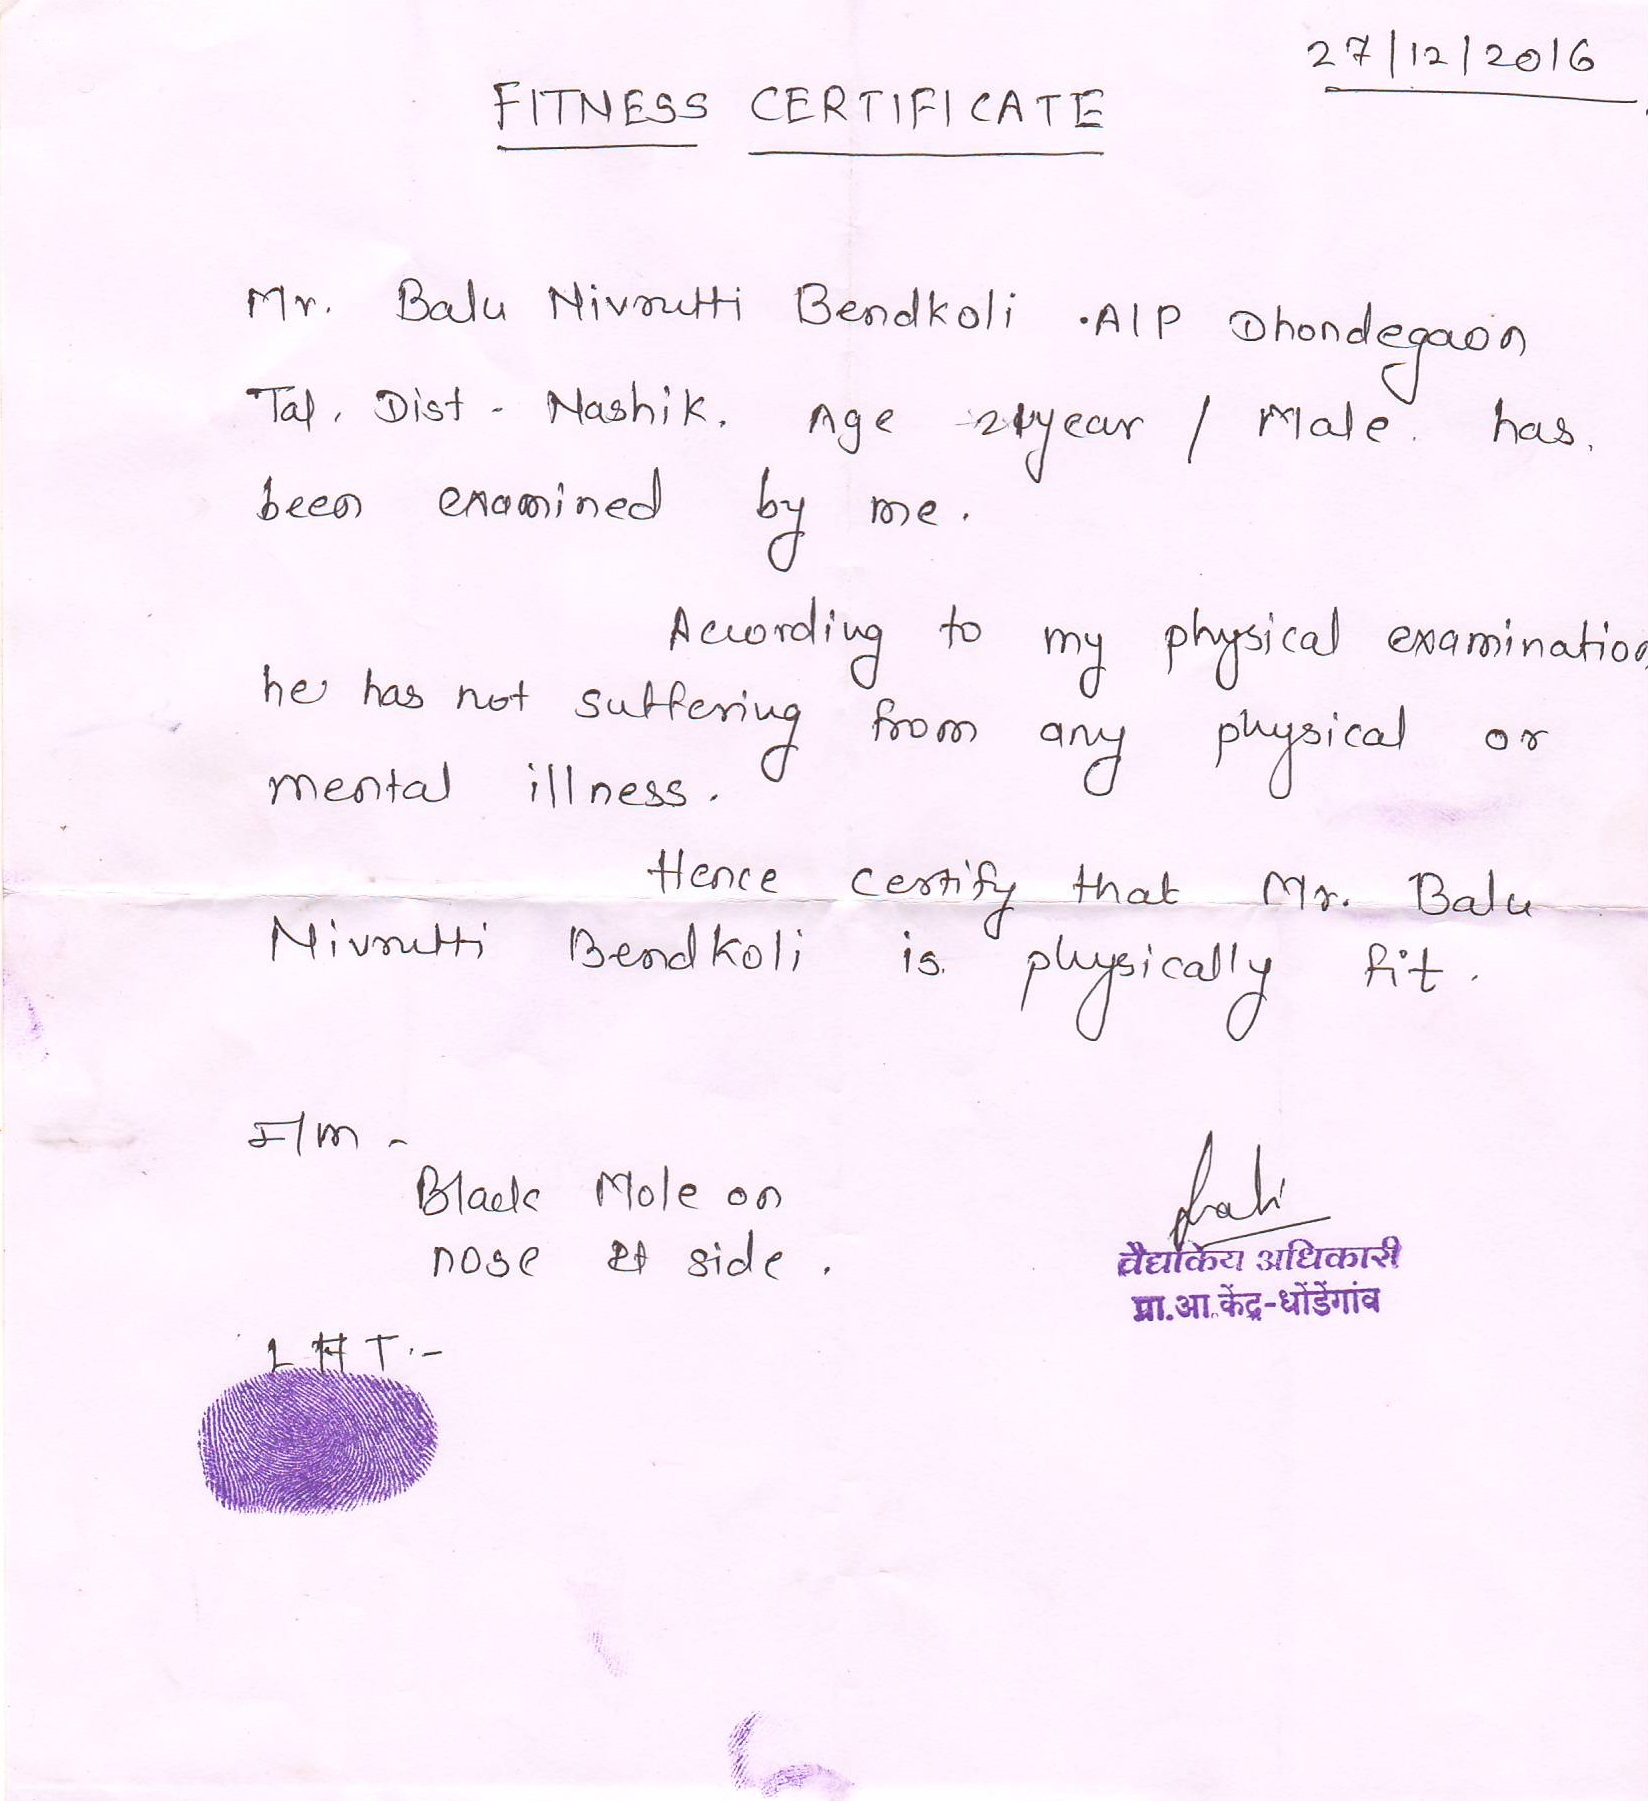 27/12/2016
FITNESS CERTIFICATE
Mr. Balu Nivrutti Bendkoli . A/P Dhondegaon
Tal. Dist - Nashik. Age year / Male. has.
been examined by me.
According to my physical examination
he has not suffering from any physical or
mental illness.
Hence certify that Mr. Balu
Nivrutti Bendkoli is physically fit.
I/m -
Black Mole on
nose side.
L H T. -
वैद्यकिय अधिकारी
प्रा.आ.केंद्र-धोंडेगांव